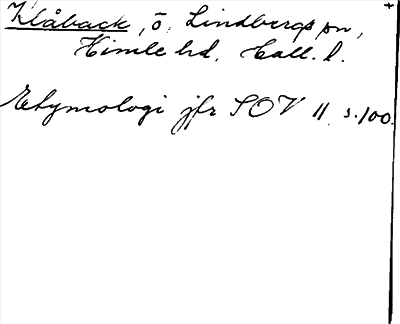 Klåback, ö. Lindbergs sn,
Himle hd, Hall. l.
Etymologi jfr SOV 11 s. 100.